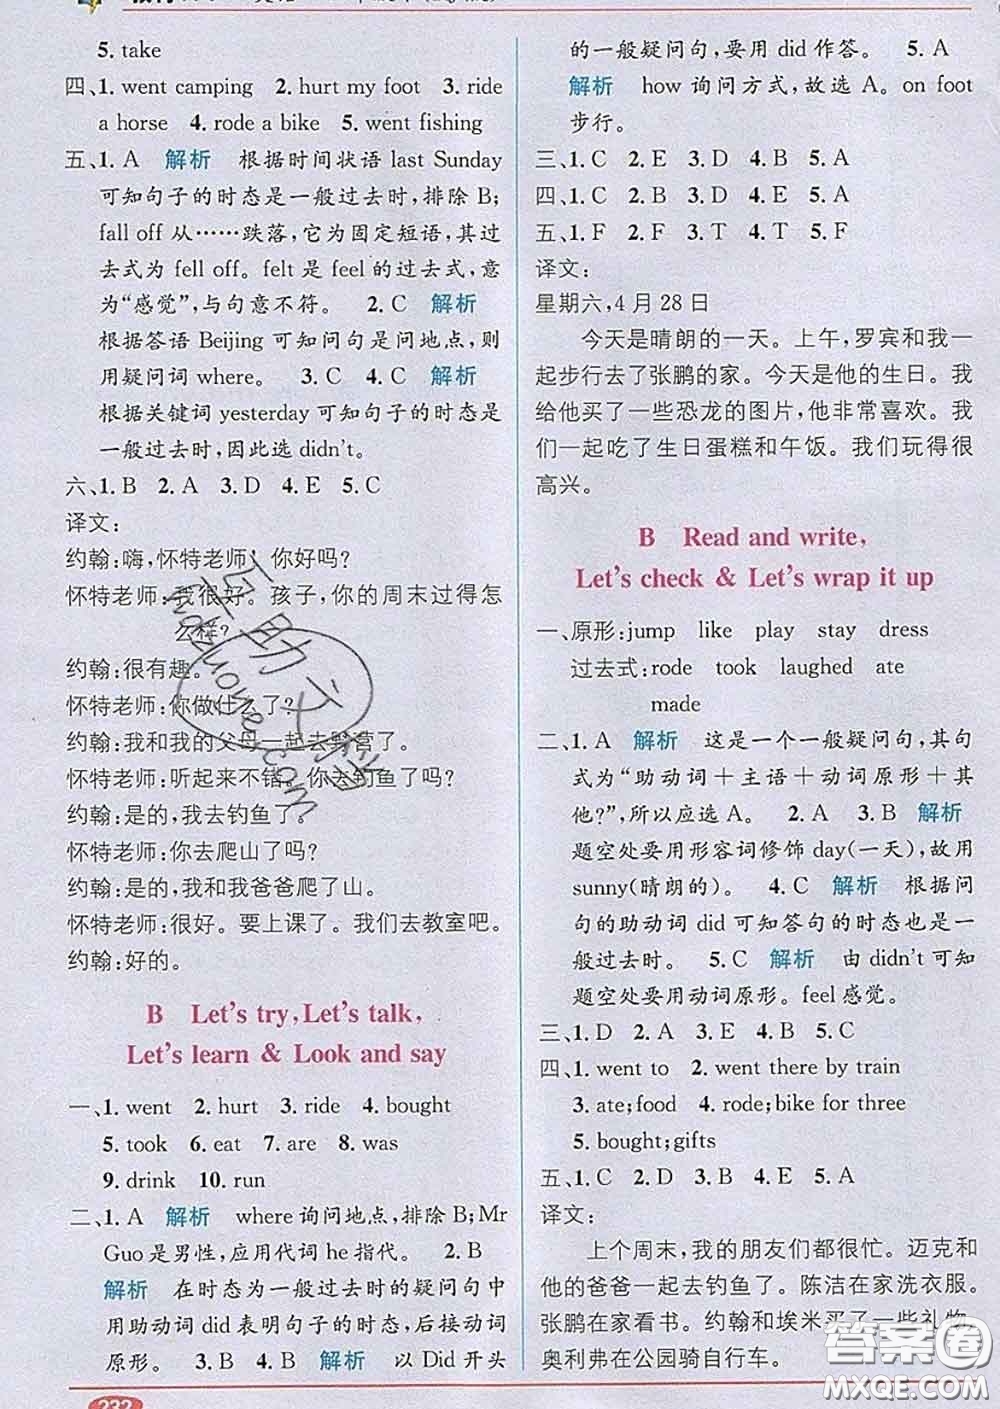 5. take
四、1. went camping 2. hurt my foot 3. ride
a horse 4. rode a bike 5. went fishing
五、1. A 解析 根据时间状语 last Sunday
可知句子的时态是一般过去时,排除 B;
fall off 从……跌落,它为固定短语,其过
去式为 fell off。felt 是 feel 的过去式,意
为“感觉”,与句意不符。 2. C 解析
根据答语 Beijing 可知问句是问地点,则
用疑问词 where。 3. C 4. C 解析
根据关键词 yesterday 可知句子的时态是
一般过去时,因此选 didn't。
六、1. B 2. A 3. D 4. E 5. C
译文:
约翰:嗨,怀特老师!你好吗?
怀特老师:我很好。孩子,你的周末过得怎
么样?
约翰:很有趣。
怀特老师:你做什么了?
约翰:我和我的父母一起去野营了。
怀特老师:听起来不错。你去钓鱼了吗?
约翰:是的,我去钓鱼了。
怀特老师:你去爬山了吗?
约翰:是的,我和我爸爸爬了山。
怀特老师:很好。要上课了。我们去教室吧。
约翰:好的。
B Let's try, Let's talk,
Let's learn & Look and say
一、1. went 2. hurt 3. ride 4. bought
5. took 6. eat 7. are 8. was
9. drink 10. run
二、1. A 解析 where 询问地点,排除 B; Mr
Guo 是男性,应用代词 he 指代。 2. B
解析 在时态为一般过去时的疑问句中
用助动词 did 表明句子的时态,后接动词
原形。 3. B 4. B 解析 以 Did 开头
232
的一般疑问句,要用 did 作答。 5. A
解析 how 询问方式,故选 A。on foot
步行。
三、1. C 2. E 3. D 4. B 5. A
四、1. C 2. B 3. D 4. E 5. A
五、1. F 2. F 3. T 4. T 5. F
译文:
星期六,4 月 28 日
今天是晴朗的一天。上午,罗宾和我一
起步行去了张鹏的家。今天是他的生日。我
给他买了一些恐龙的图片,他非常喜欢。我
们一起吃了生日蛋糕和午饭。我们玩得很
高兴。
B Read and write,
Let's check & Let's wrap it up
一、原形:jump like play stay dress
过去式:rode took laughed ate
made
二、1. A 解析 这是一个一般疑问句,其句
式为“助动词+主语+动词原形+其
他?”,所以应选 A。 2. A 3. B 解析
题空处要用形容词修饰 day(一天),故用
sunny(晴朗的)。 4. C 解析 根据问
句的助动词 did 可知答句的时态也是一
般过去时。 5. C 解析 由 didn't 可知
题空处要用动词原形。feel 感觉。
三、1. D 2. A 3. E 4. B 5. C
四、1. went to 2. went there by train
3. ate;food 4. rode;bike for three
5. bought;gifts
五、1. C 2. D 3. B 4. E 5. A
译文:
上个周末,我的朋友们都很忙。迈克和
他的爸爸一起去钓鱼了。陈洁在家洗衣服。
张鹏在家看书。约翰和埃米买了一些礼物。
奥利弗在公园骑自行车。
答案圈
MXQE.COM